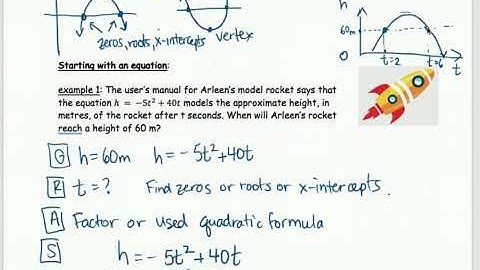 h
60m
0
t=2
t=6
t
zeros, roots, x-intercepts
vertex
Starting with an equation:
example 1: The user's manual for Arleen's model rocket says that
the equation h = −5t² + 40t models the approximate height, in
metres, of the rocket after t seconds. When will Arleen's rocket
reach a height of 60 m?
G h=60m h=-5t²+40t
R t=? Find zeros or roots or x-intercepts.
A Factor or used quadratic formula
S h=-5t²+40t